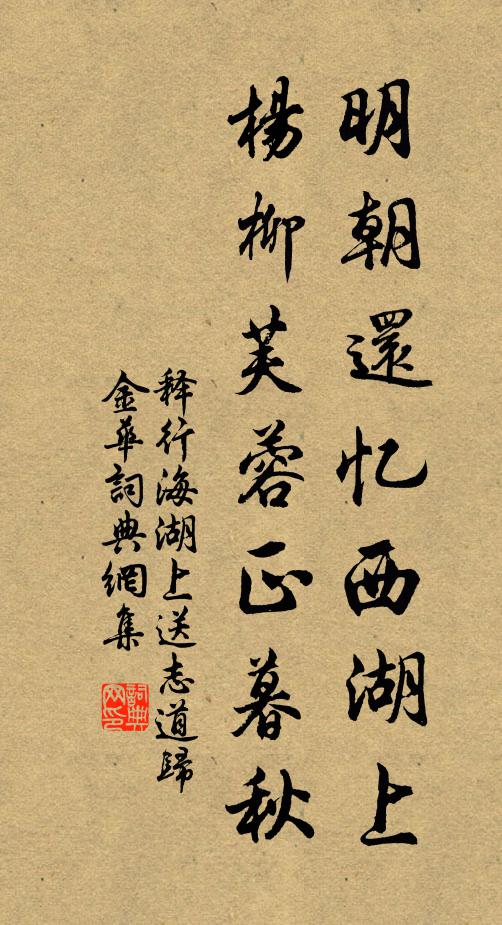 明朝還忆西湖上
楊柳芙蓉正暮秋
释行海湖上送志道歸
金華詞典網集
詞典
网印